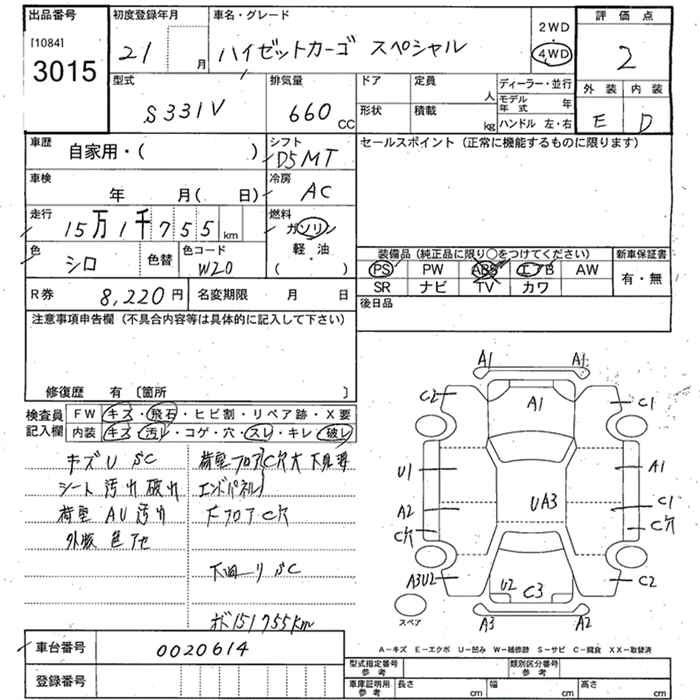 出品番号
[1084]
3015
初度登録年月
21 月
車名・グレード
ハイゼットカーゴ スペシャル
2WD
・
4WD
評価点
2
型式
S331V
排気量
660 CC
ドア
定員
人
形状
積載
kg
ディーラー・並行
モデル年式 年
ハンドル 左・右
外装
内装
E
D
車歴
自家用・( )
シフト
D5MT
セールスポイント (正常に機能するものに限ります)
車検
年 月( 日)
冷房
AC
走行
15万1千755km
燃料
ガソリン
・
軽油
・
( )
色
シロ
色替
色コード
W20
装備品 (純正品に限り○をつけてください)
新車保証書
PS PW ABS エアB AW
SR ナビ TV カワ
有・無
R券
8,220円
名変期限 月 日
後日品
注意事項申告欄 (不具合内容等は具体的に記入して下さい)
修復歴 有 〔箇所 〕
検査員記入欄
FW キズ・飛石・ヒビ割・リペア跡・X要
内装 キズ・汚レ・コゲ・穴・スレ・キレ・破レ
キズU SC
シート汚れ破れ
荷室AU汚れ
外板色アセ
荷室フロアC穴大 下見要
エンドパネル
FフロアC穴
下回りSC
151755km
A1
A1
C2
A1
C1
U1
A1
A2
UA3
C1
C穴
C穴
A3U2
U2
C3
C2
A3
A2
スペア
A−キズ E−エクボ U−凹み W−補修跡 S−サビ C−腐食 XX−取替済
車台番号
0020614
登録番号
型式指定番号
参考
類別区分番号
参考
車庫証明用
参考
長さ cm
幅 cm
高さ cm